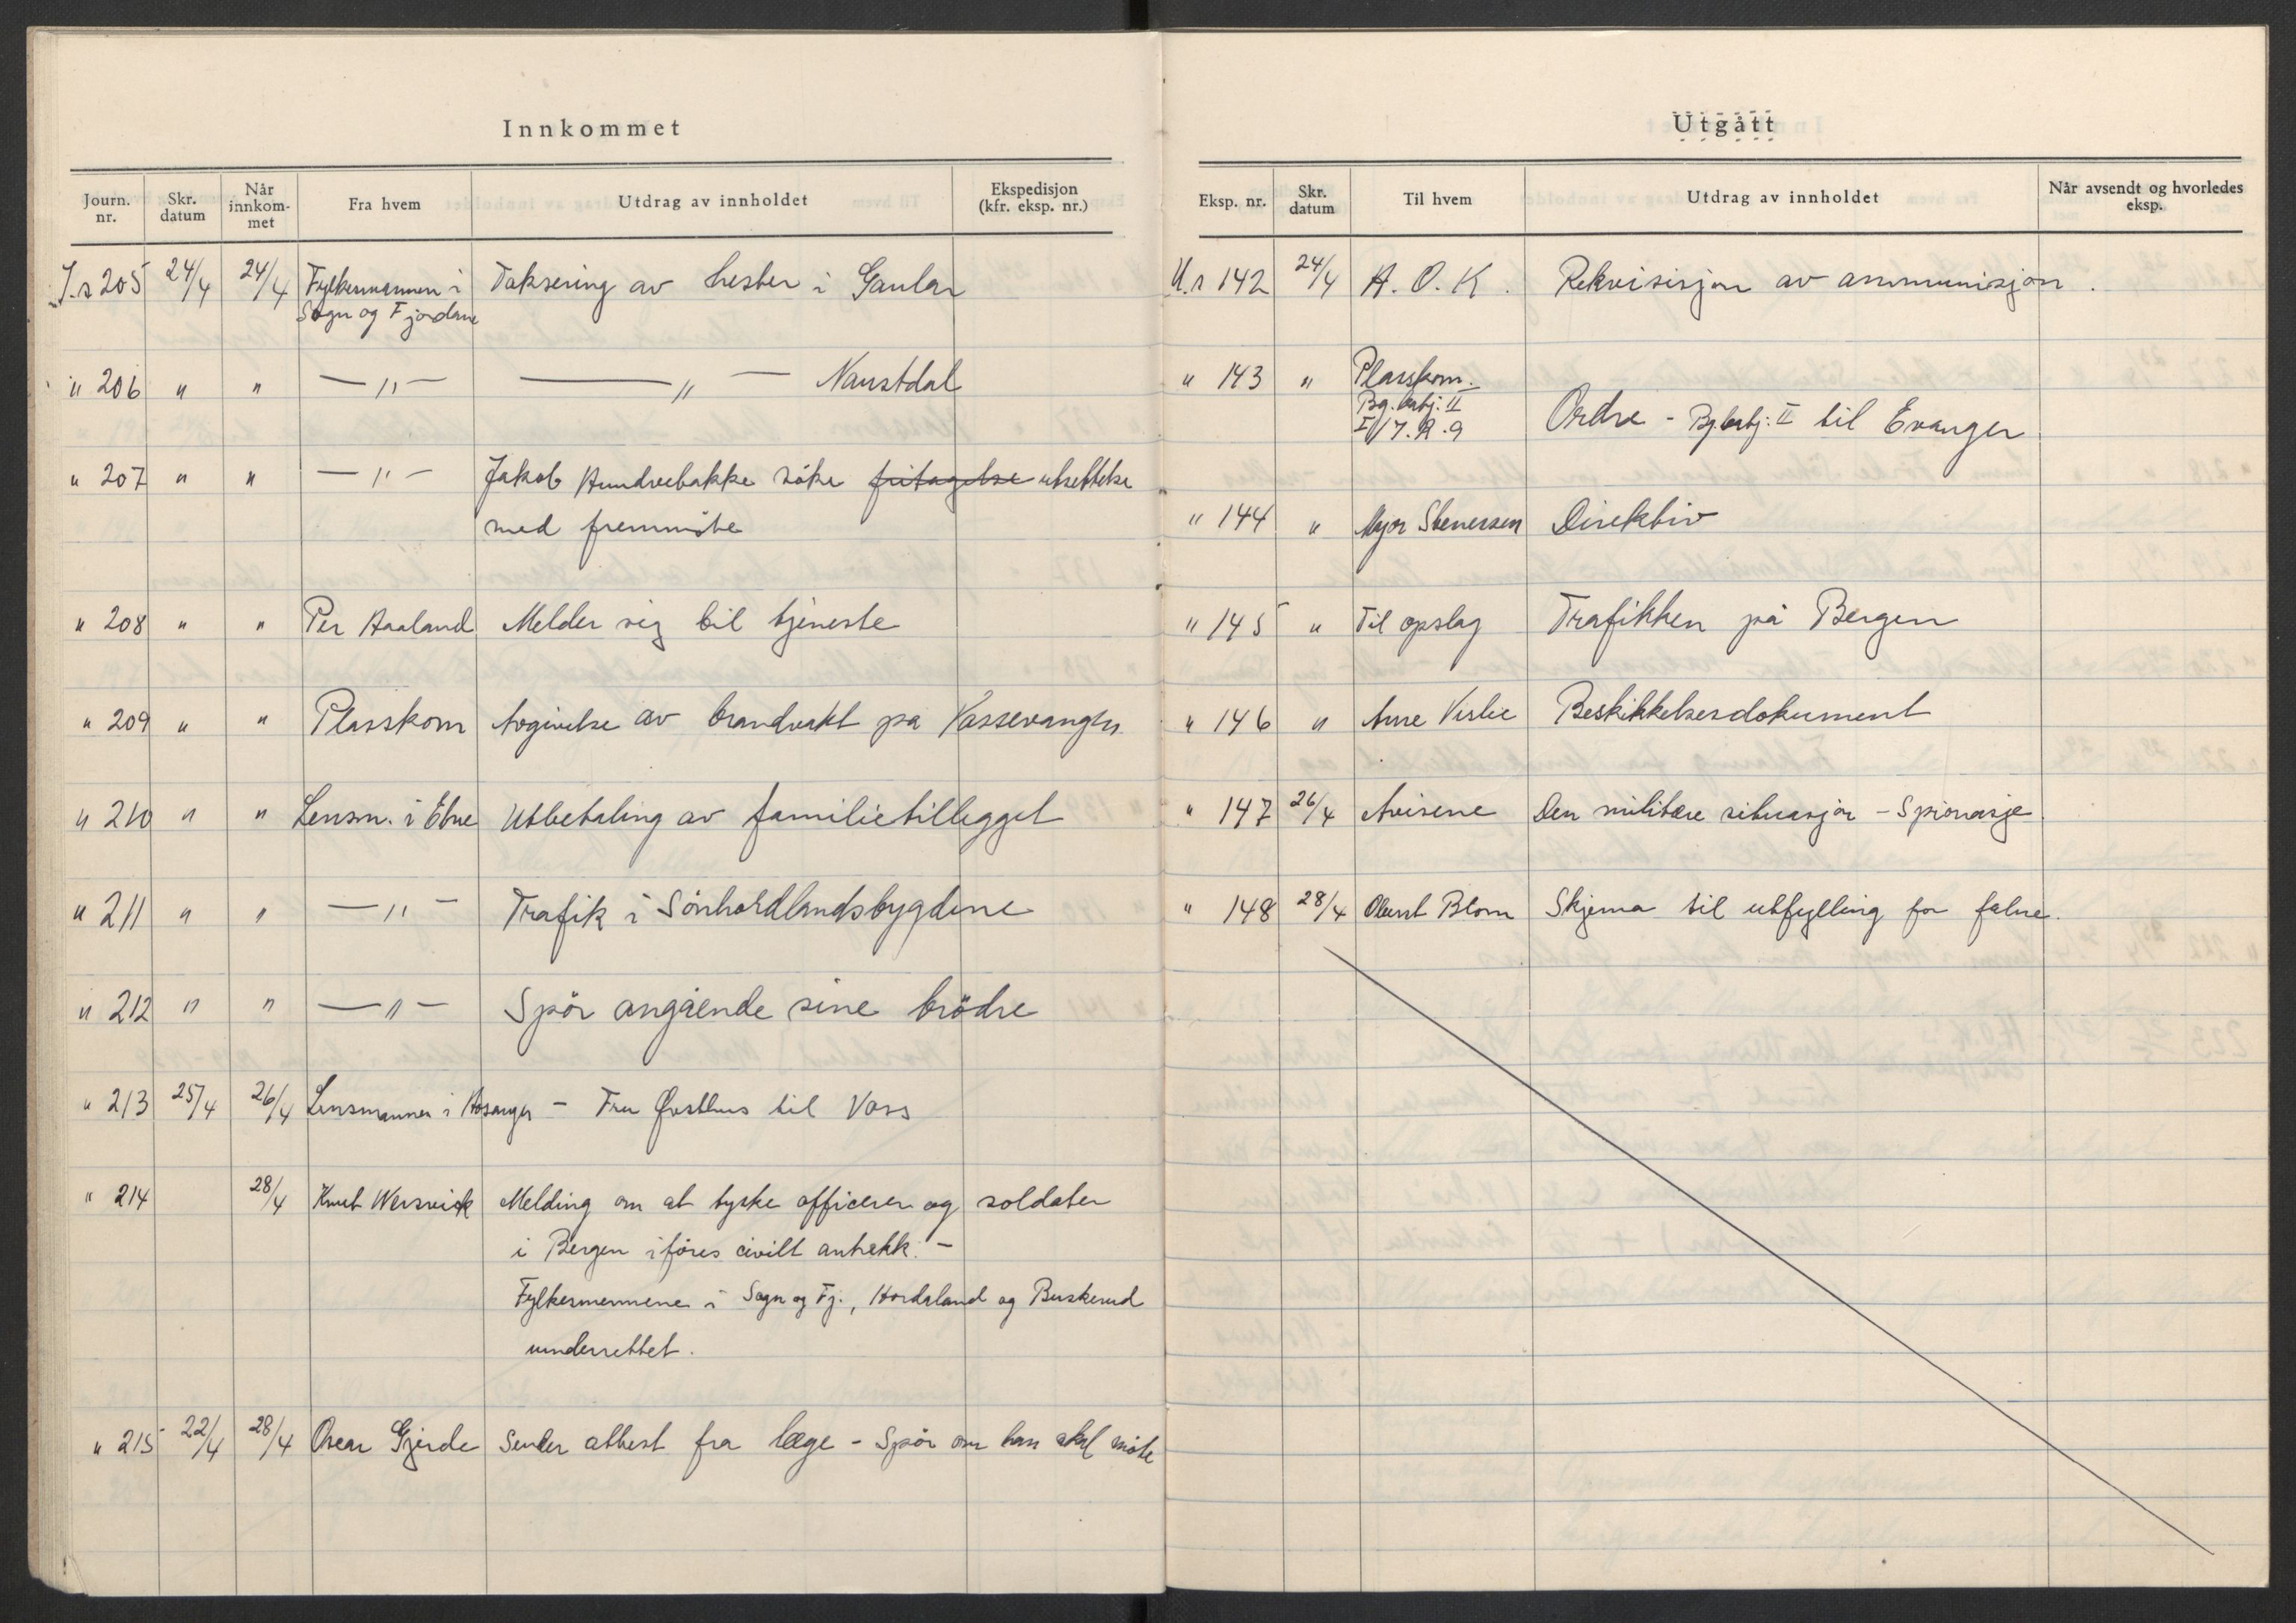 Innkommet
Journ. nr. Skr. datum Når innkom-met Fra hvem Utdrag av innholdet Ekspedisjon (kfr. eksp. nr.)
J. s 205 24/4 24/4 Fylkesmannen i Sogn og Fjordane Taksering av hester i Gaular
" 206 " " — " — — " — Naustdal
" 207 " " — " — Jakob Hundvebakke söke fritagelse utsettelse
med fremmöte
" 208 " " Per Aaland Melder sig til tjeneste
" 209 " " Plasskom Avgivelse av brandvakt pa Vossevangen.
" 210 " " Lensm. i Etne Utbetaling av familietillegget
" 211 " " — " — Trafik i Sönhordlandsbygdene
" 212 " " — " — Spör angående sine brödre
" 213 25/4 26/4 Lensmannen i Hosanger – Fru Østhus til Voss
" 214 28/4 Knut Wersvick Melding om at tyske officerer og soldater
i Bergen iföres civilt antrekk. –
Fylkesmennene i Sogn og Fj., Hordaland og Buskerud
underrettet.
" 215 22/4 28/4 Oscar Gjerde Sender attest fra læge – Spör om han skal möte
Utgått
Eksp. nr. Skr. datum Til hvem Utdrag av innholdet Når avsendt og hvorledes eksp.
U. s 142 24/4 H. O. K. Rekvisisjon av ammunisjon.
" 143 " Plasskom.
Bg. batj. II
I/I.R.9 Ordre – Bg. batj. II til Evanger
" 144 " Major Stenersen Direktiv
" 145 " Til opslag Trafikken på Bergen
" 146 " Arne Vislie Beskikkelsesdokument
" 147 26/4 Avisene Den militære situasjon – Spionasje
" 148 28/4 Oberst Blom Skjema til utfylling for falne.